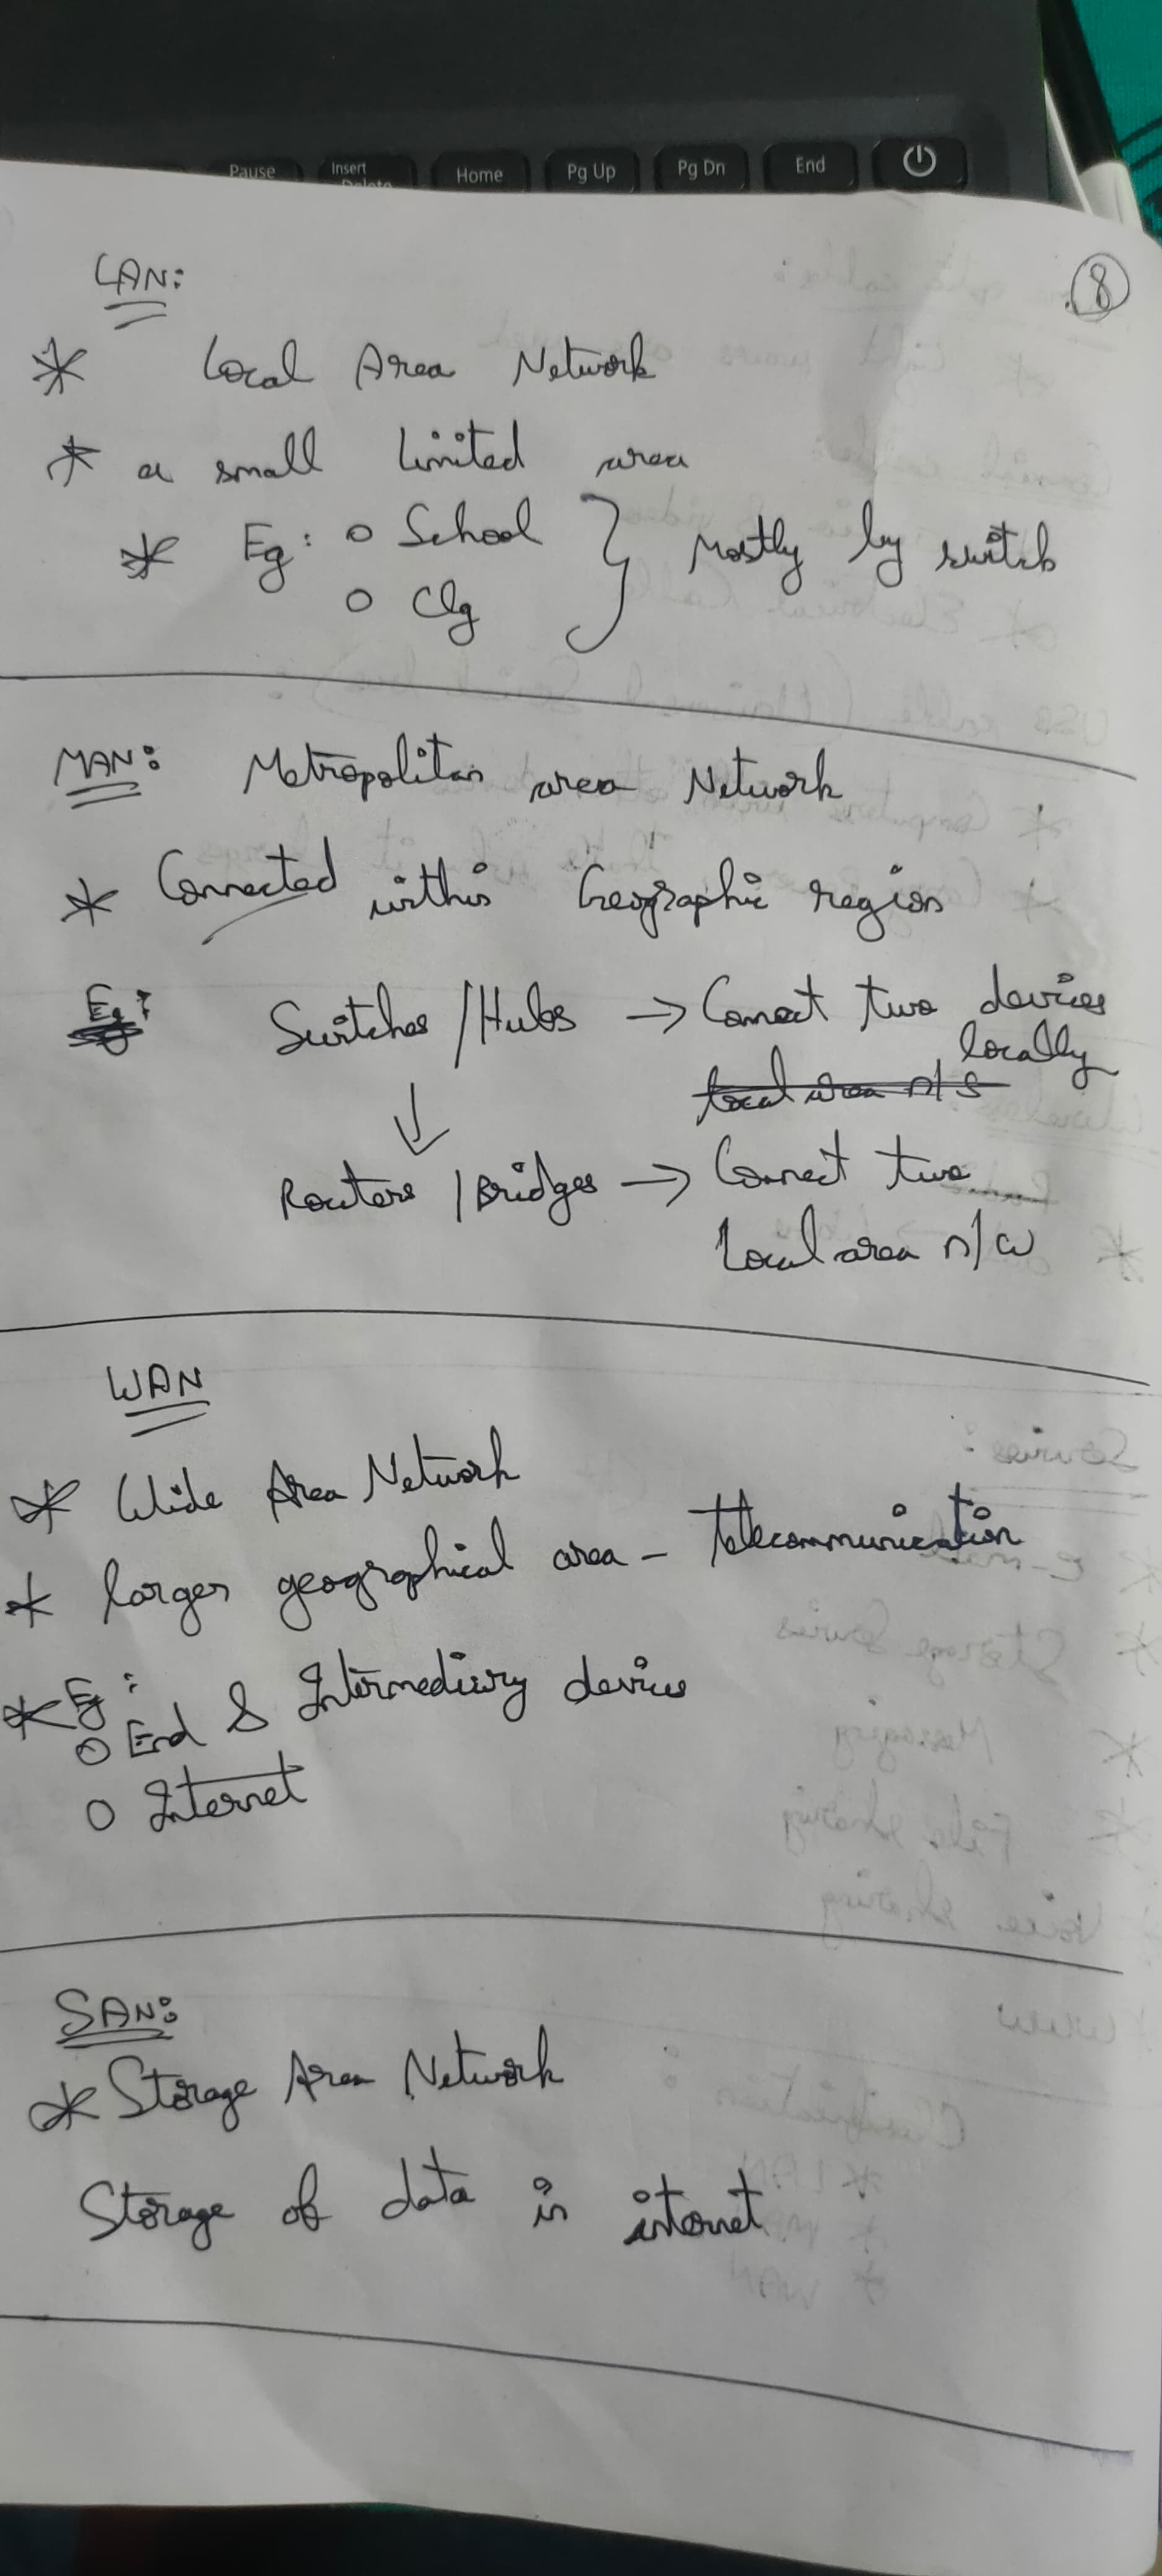 Pause Insert Delete Home Pg Up Pg Dn End
8
LAN:
* Local Area Network
* a small limited area
* Eg: o School } Mostly by switch
o Clg
MAN: Metropolitan area Network
* Connected within Geographic region
Eg:
Switches / Hubs → Connect two devices
locally
local area n/s
↓
Routers / Bridges → Connect two
local area n/w
WAN
* Wide Area Network
* larger geographical area - telecommunication
* Eg:
o End & Intermediary device
o Internet
SAN:
* Storage Area Network
Storage of data in internet